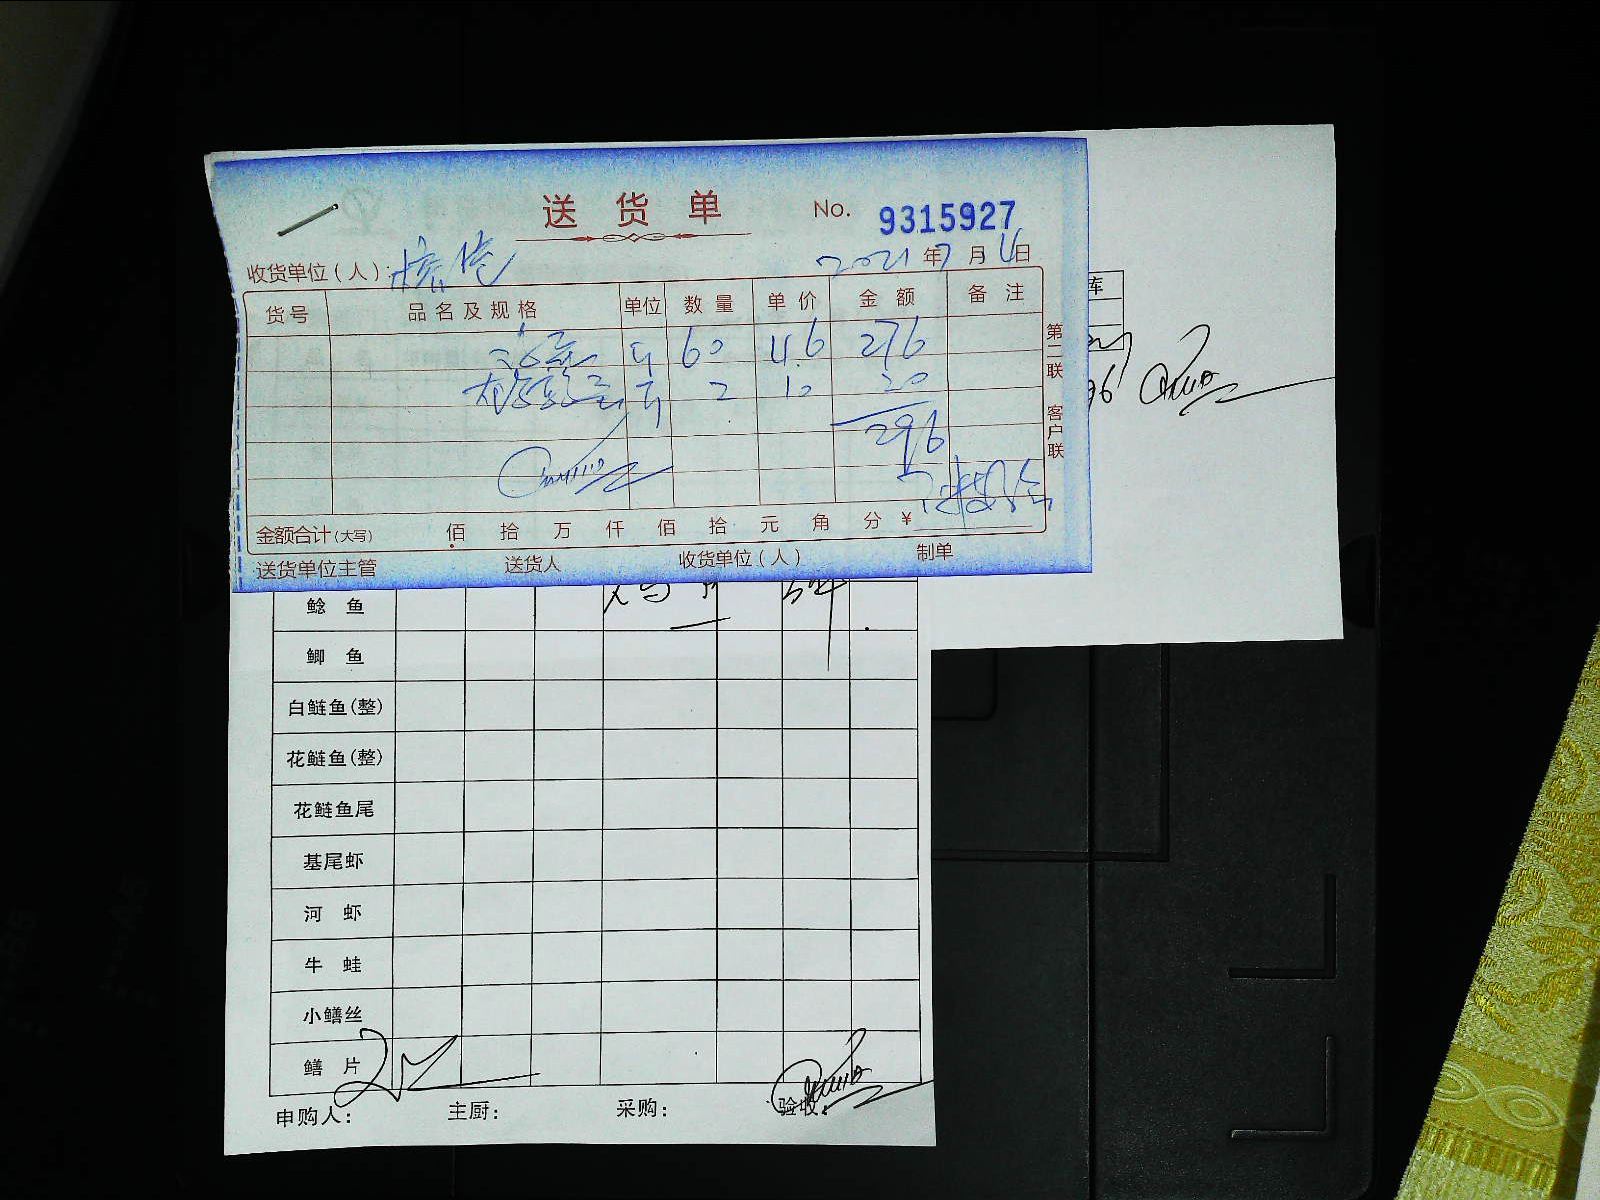 送货单 No. 9315927
收货单位(人): 2021年7月4日
货号 品名及规格 单位 数量 单价 金额 备注
斤 60 4.6 276
斤 2 10 20
296
金额合计(大写) 佰 拾 万 仟 佰 拾 元 角 分 ¥
送货单位主管 送货人 收货单位(人) 制单
第二联 客户联
库
96
鲶鱼
鲫鱼
白鲢鱼(整)
花鲢鱼(整)
花鲢鱼尾
基尾虾
河虾
牛蛙
小鳝丝
鳝片
申购人: 主厨: 采购: 验收: